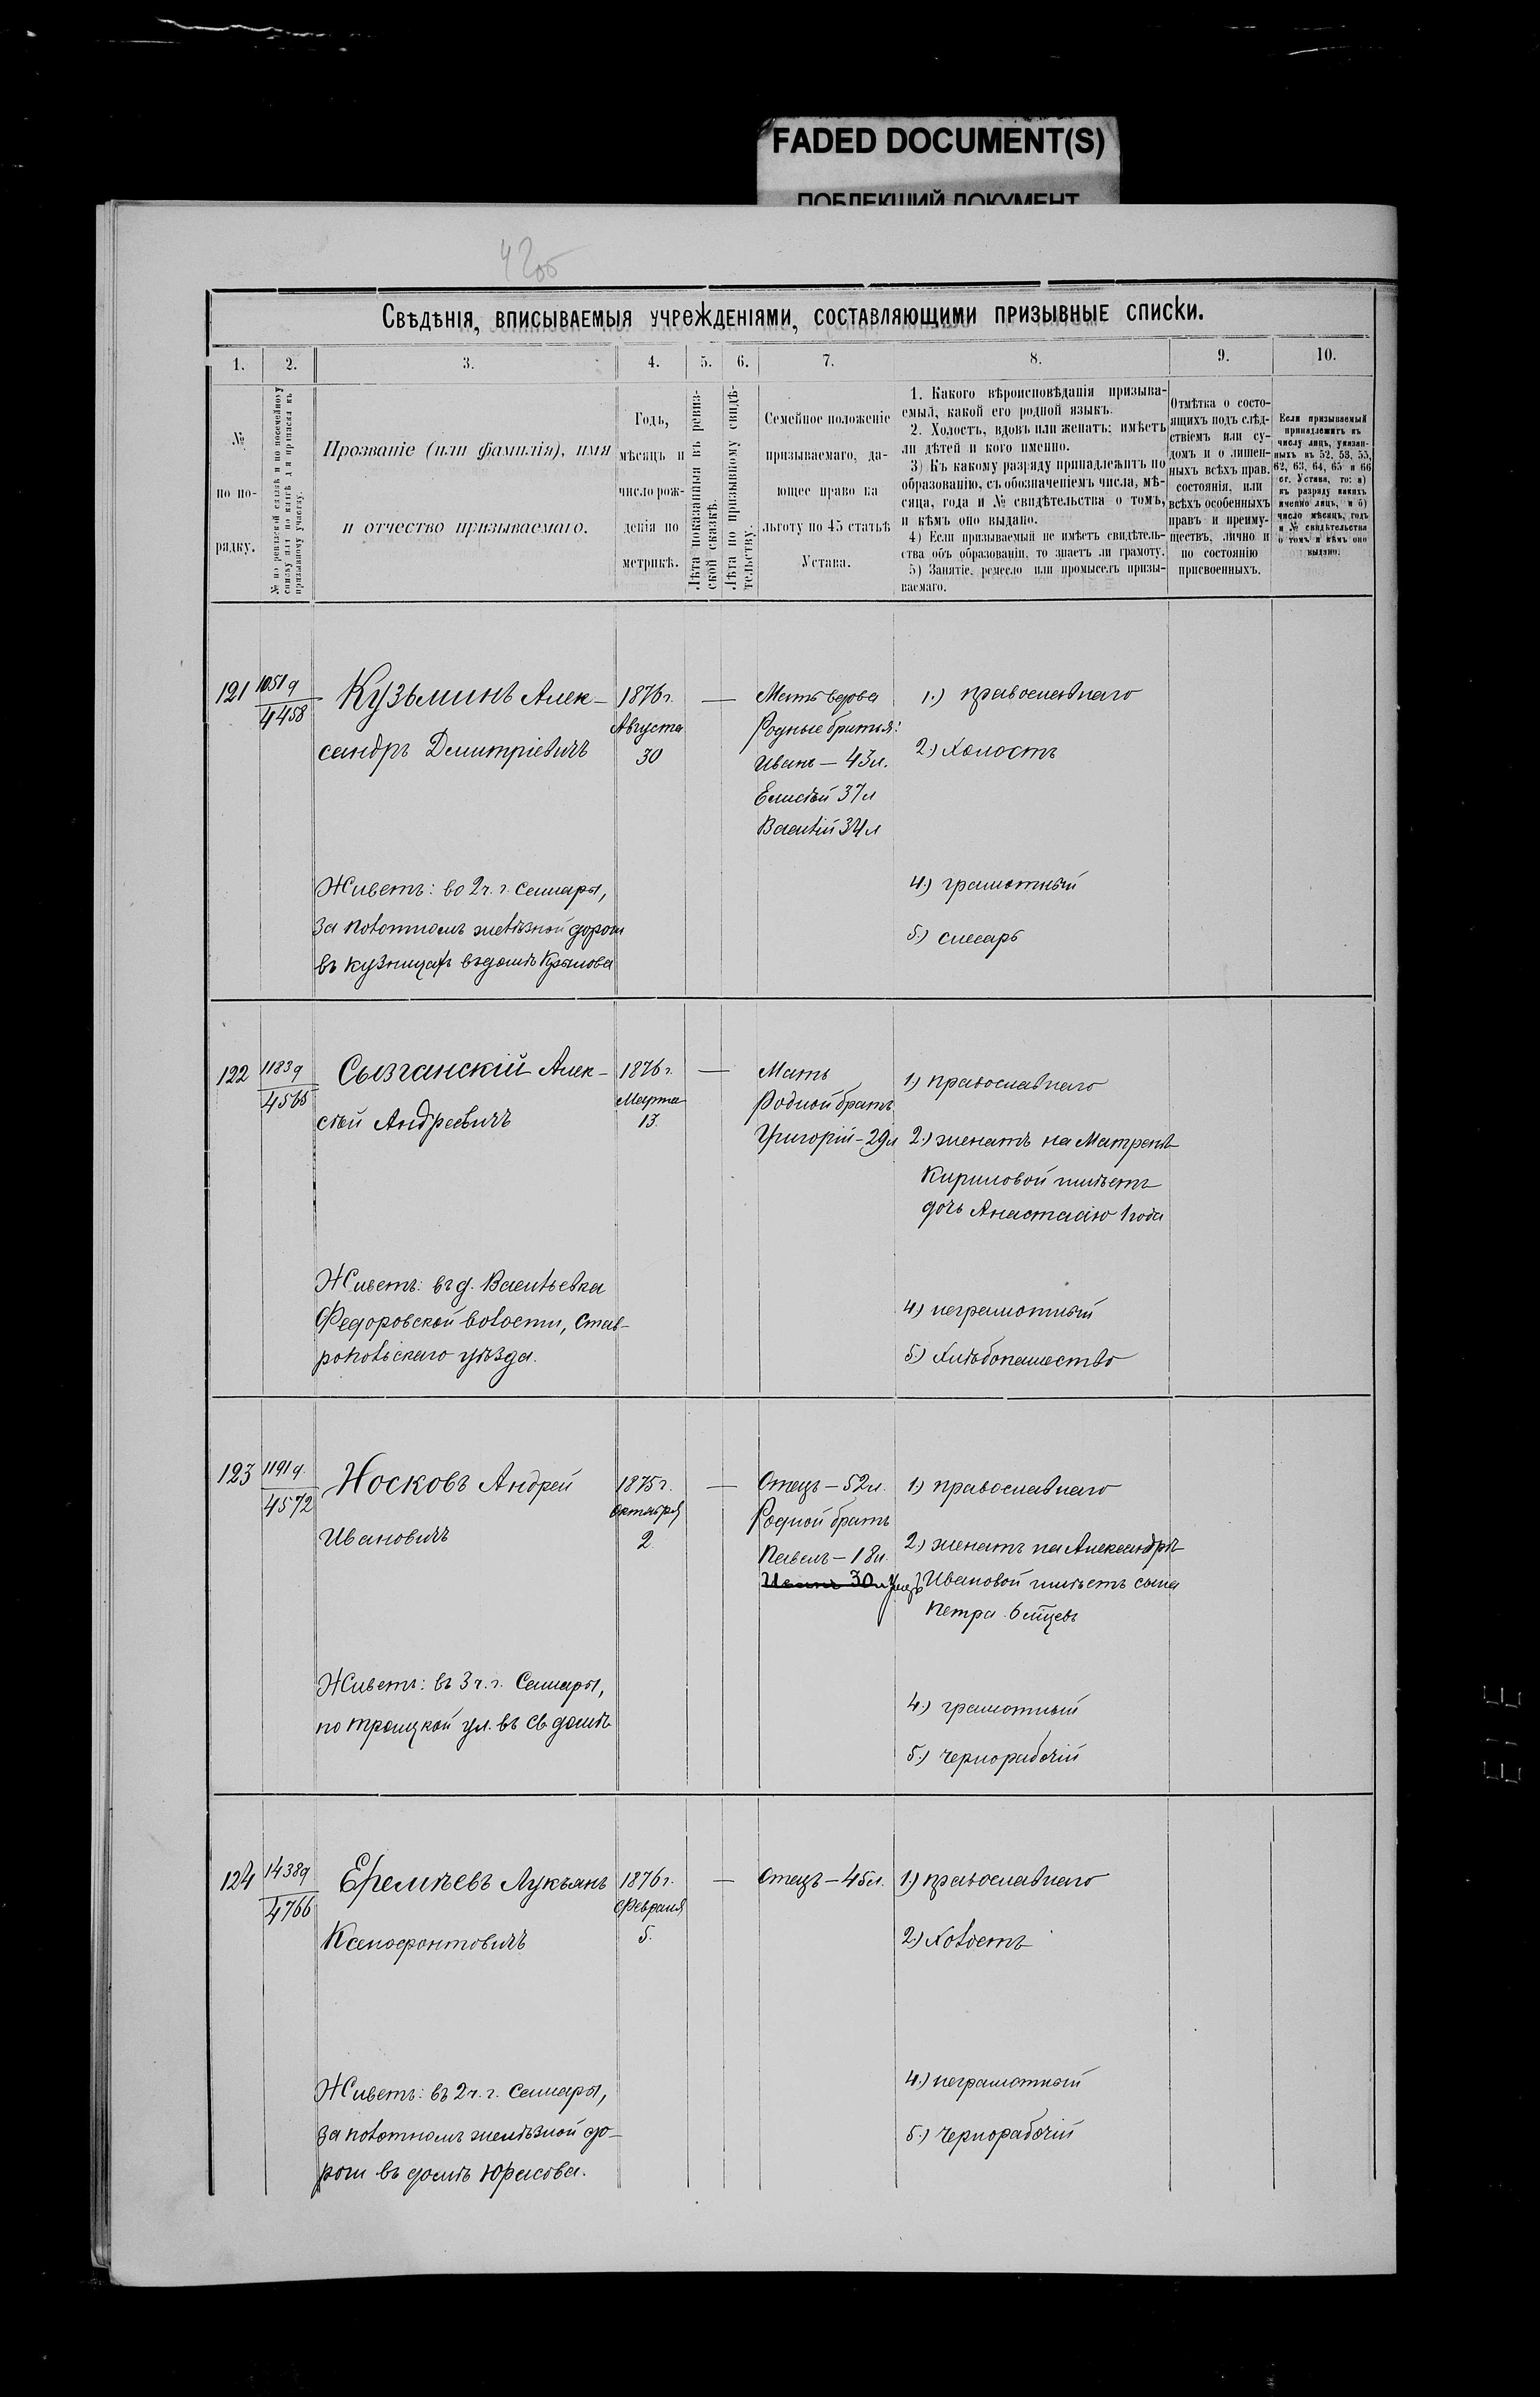 FADED DOCUMENT(S)
ПОБЛЕКШИЙ ДОКУМЕНТ
42об
Свѣдѣнія, вписываемыя учрежденіями, составляющими призывные списки.
1. 2. 3. 4. 5. 6. 7. 8. 9. 10.
№
по по-
рядку.
№ по ревизской сказкѣ и по посемейному
списку или по книгѣ для приписки къ
призывному участку.
Прозваніе (или фамилія), имя
и отчество призываемаго.
Годъ,
мѣсяцъ и
число рож-
денія по
метрикѣ.
Лѣта показанныя въ ревиз-
ской сказкѣ.
Лѣта по призывному свидѣ-
тельству.
Семейное положеніе
призываемаго, да-
ющее право на
льготу по 45 статьѣ
Устава.
1. Какого вѣроисповѣданія призыва-
емый, какой его родной языкъ.
2. Холостъ, вдовъ или женатъ; имѣетъ
ли дѣтей и кого именно.
3) Къ какому разряду принадлежитъ по
образованію, съ обозначеніемъ числа, мѣ-
сяца, года и № свидѣтельства о томъ,
и кѣмъ оно выдано.
4) Если призываемый не имѣетъ свидѣтель-
ства объ образованіи, то знаетъ ли грамоту.
5) Занятіе, ремесло или промыселъ призы-
ваемаго.
Отмѣтка о состо-
ящихъ подъ слѣд-
ствіемъ или су-
домъ и о лишен-
ныхъ всѣхъ прав.
состоянія, или
всѣхъ особенныхъ
правъ и преиму-
ществъ, лично и
по состоянію
присвоенныхъ.
Если призываемый
принадлежитъ къ
числу лицъ, указан-
ныхъ въ 52, 53, 55,
62, 63, 64, 65 и 66
ст. Устава, то: а)
къ разряду какихъ
именно лицъ, и б)
число мѣсяцъ, годъ
и № свидѣтельства
о томъ и кѣмъ оно
выдано.
121
1051д
4458
Кузьминъ Алек-
сандръ Димитріевичъ
1876г.
Августа
30
—
Мать вдова
Родные братья:
Иванъ — 43л.
Елисѣй 37л
Василій 34л
1.) православнаго
2.) Холостъ
Живетъ: во 2ч. г. Самары,
за полотномъ желѣзной дороги
въ кузницахъ въ домѣ Крылова
4.) грамотный
5.) слесарь
122
1183д
4565
Сызганскій Алек-
сѣй Андреевичъ
1876г.
Марта
13.
—
Мать
Родной братъ
Григорій-29л
1) православнаго
2.) женатъ на Матренѣ
Кириловой имѣетъ
дочь Анастасію 1 года
Живетъ: въ д. Васильевка
Федоровской волости, Став-
ропольскаго уѣзда.
4.) неграмотный
5.) Хлѣбопашество
123
1191д.
4572
Носковъ Андрей
Ивановичъ
1875г.
октября
2
—
Отецъ — 52л.
Родной братъ
Павелъ — 18л.
Иванъ 30л
1.) православнаго
2.) женатъ на Александрѣ
Ивановой имѣетъ сына
Петра 6 мѣцевъ
Живетъ: въ 3ч. г. Самары,
по троицкой ул. въ св. домѣ
4.) грамотный
5.) чернорабочій
124
1438д
4766
Еремѣевъ Лукьянъ
Ксенофонтовичъ
1876г.
февраля
5.
—
Отецъ — 45л.
1.) православнаго
2.) Холостъ
Живетъ: въ 2ч. г. Самары,
за полотномъ желѣзной до-
роги въ домѣ Юрасова.
4.) неграмотный
5.) чернорабочій